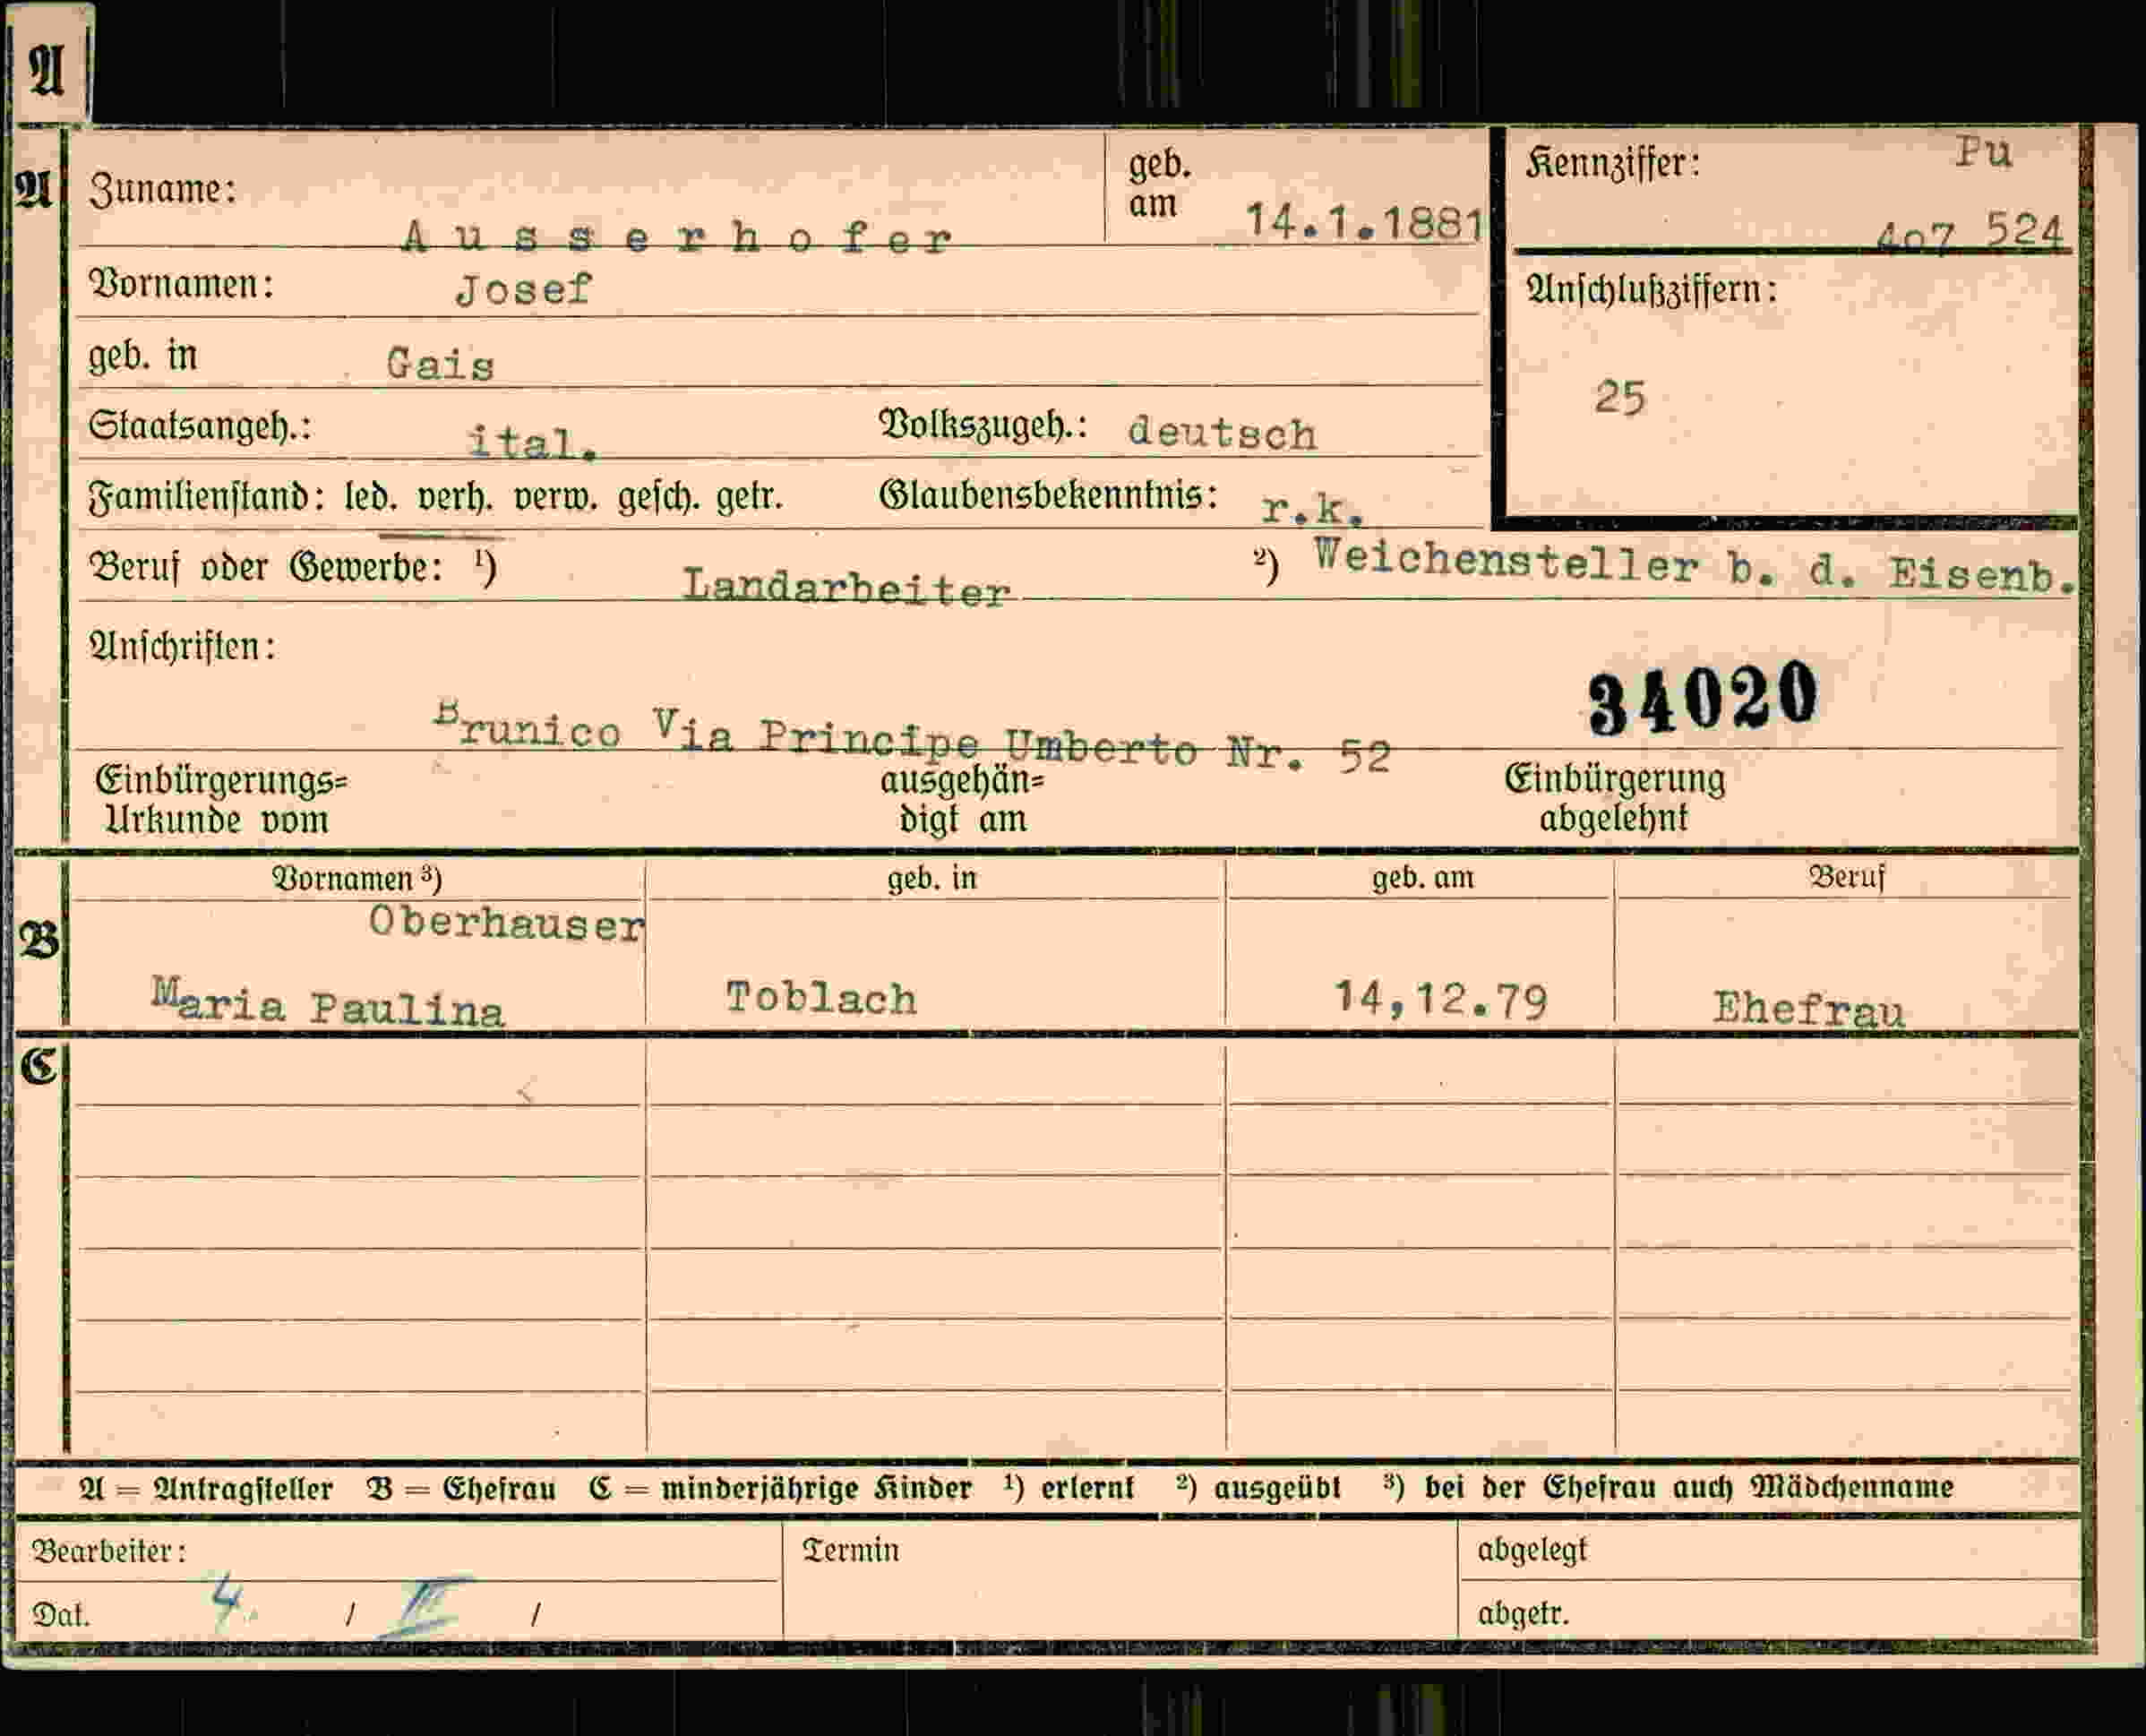 A
A
Zuname: Ausserhofer
geb. am 14.1.1881
Kennziffer: Pu 407 524
Vornamen: Josef
Anschlußziffern: 25
geb. in Gais
Staatsangeh.: ital. Volkszugeh.: deutsch
Familienstand: led. verh. verw. gesch. getr. Glaubensbekenntnis: r.k.
Beruf oder Gewerbe: ¹) Landarbeiter ²) Weichensteller b. d. Eisenb.
Anschriften:
34020
Brunico Via Principe Umberto Nr. 52
Einbürgerungs= ausgehän= Einbürgerung
Urkunde vom digt am abgelehnt
Vornamen ³) geb. in geb. am Beruf
B
Oberhauser
Maria Paulina Toblach 14,12.79 Ehefrau
C
A = Antragsteller B = Ehefrau C = minderjährige Kinder ¹) erlernt ²) ausgeübt ³) bei der Ehefrau auch Mädchenname
Bearbeiter: Termin abgelegt
Dat. 4. / / abgetr.